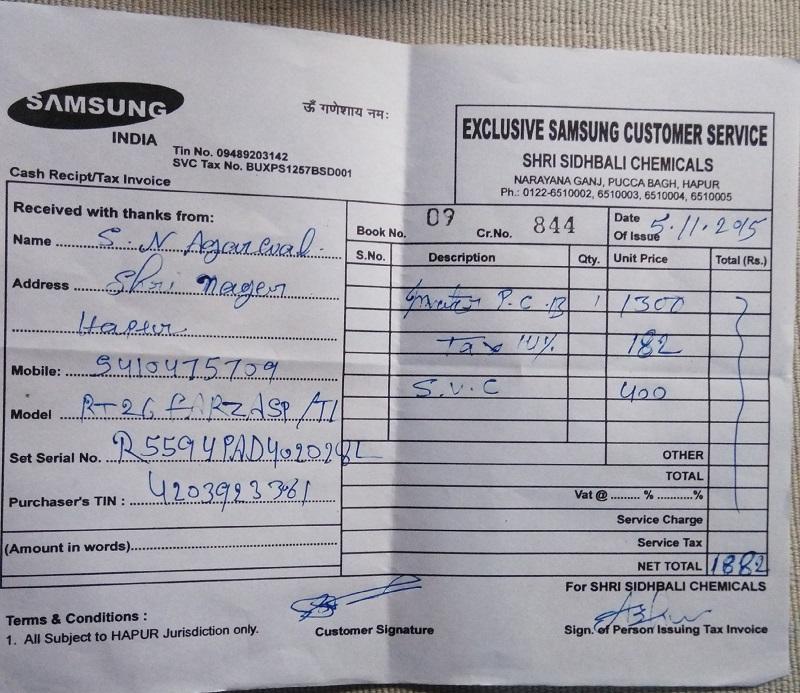 SAMSUNG
INDIA
ॐ गणेशाय नमः
Tin No. 09489203142
SVC Tax No. BUXPS1257BSD001
Cash Recipt/Tax Invoice
EXCLUSIVE SAMSUNG CUSTOMER SERVICE
SHRI SIDHBALI CHEMICALS
NARAYANA GANJ, PUCCA BAGH, HAPUR
Ph.: 0122-6510002, 6510003, 6510004, 6510005
Received with thanks from:
Name S. N Agarwal.
Address Shri nager
Hapur
Mobile: 9410475709
Model RT-26
Set Serial No.
Purchaser's TIN : 4203923361
(Amount in words)
Book No. 09 Cr.No. 844 Date Of Issue 5.11.2015
S.No. Description Qty. Unit Price Total (Rs.)
P.C.B 1 1300
Tax 14% 182
S.V.C 400
OTHER
TOTAL
Vat @ ......... % ..........%
Service Charge
Service Tax
NET TOTAL 1882
For SHRI SIDHBALI CHEMICALS
Terms & Conditions :
1. All Subject to HAPUR Jurisdiction only.
Customer Signature
Sign. of Person Issuing Tax Invoice